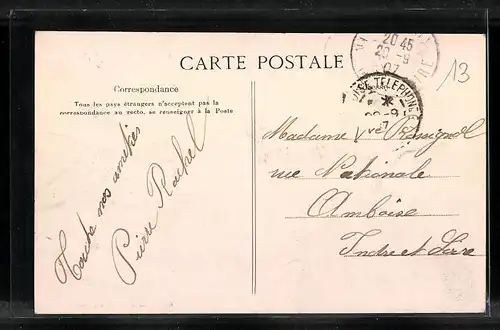 20 45
20 -9
07
CARTE POSTALE
13
Correspondance
Tous les pays étrangers n'acceptent pas la
correspondance au recto, se renseigner à la Poste
TELEPHONE
Madame Vve Rossignol
rue Nationale
Amboise
Indre et Loire
nos amitiés
Pierre Rachel